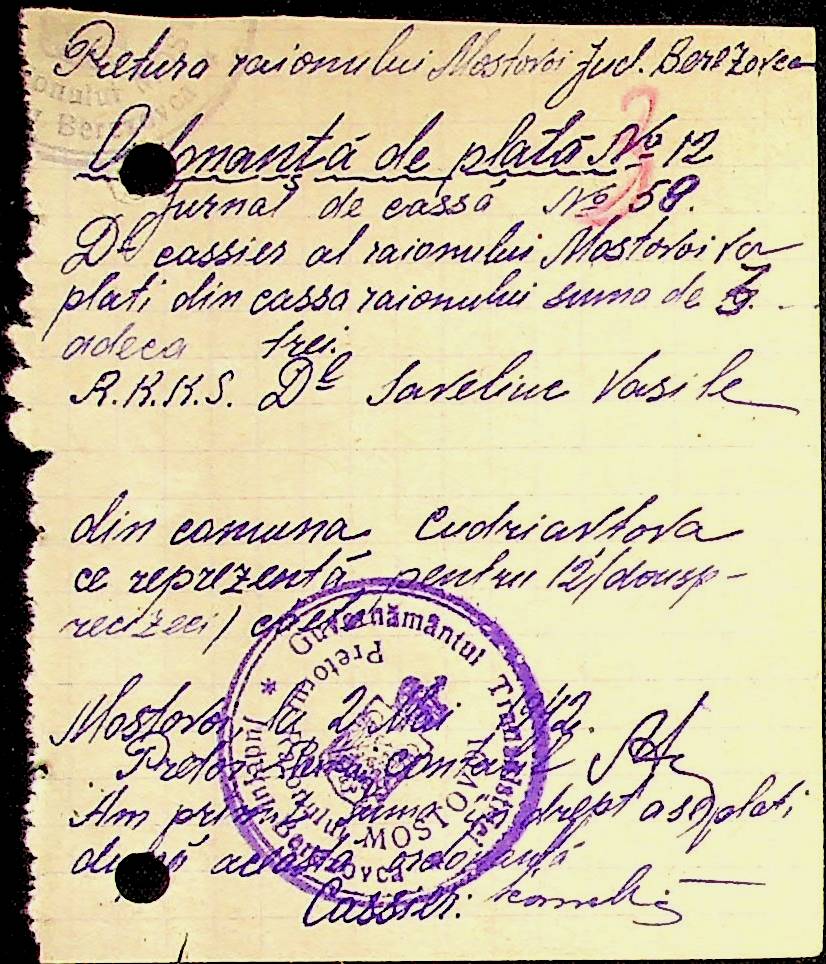 Pretura raionului Mostovoi Jud. Berezovca
Ordonanţă de plată № 12
Jurnal de cassă № 59.
Dl cassier al raionului Mostovoi va
plati din cassa raionului suma de 3.
adeca trei.
R.K.K.S. Dl Saveliuc Vasile
din comuna Cudriavtova
ce reprezentă pentru 12 /dousp-
recizeci/
Mostovoi la 2 Mai 942.
Pretor Contabil
Am primit suma drept a se plati
după aceasta ordonanţă
Cassier:
Guvernământul Transnistriei
Judeţul Berezovca
Pretura Raionului
MOSTOVOI